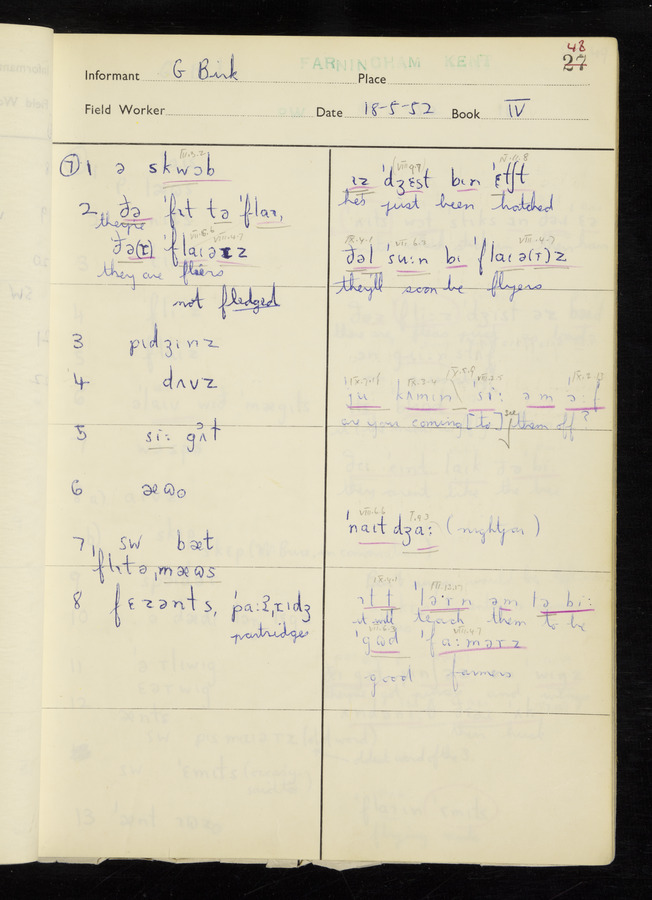 48
FARNINGHAM KENT 27
Informant G Birk Place
Field Worker Date 18-5-52 Book IV
⑦ 1 ə skwɔb
2 ðə 'fɪt tə 'flaɪ,
they're
ðə(r) 'flaɪəɪz
they are fliers
not fledged
3 pɪdʒɪnz
4 dʌvz
5 si: gʌt
6
7 sw bæt
8 fɛzənts,
partridges
ɪz 'dʒɛst bɪn 'ɛtʃt
he's just been hatched
ðəl 'su:n bɪ 'flaɪə(r)z
they'll soon be flyers
ju kʌmɪn si: əm ɔ:f
are you coming [to] see them off?
'naɪtdʒa: (nightjar)
it will teach them to be
good farmers